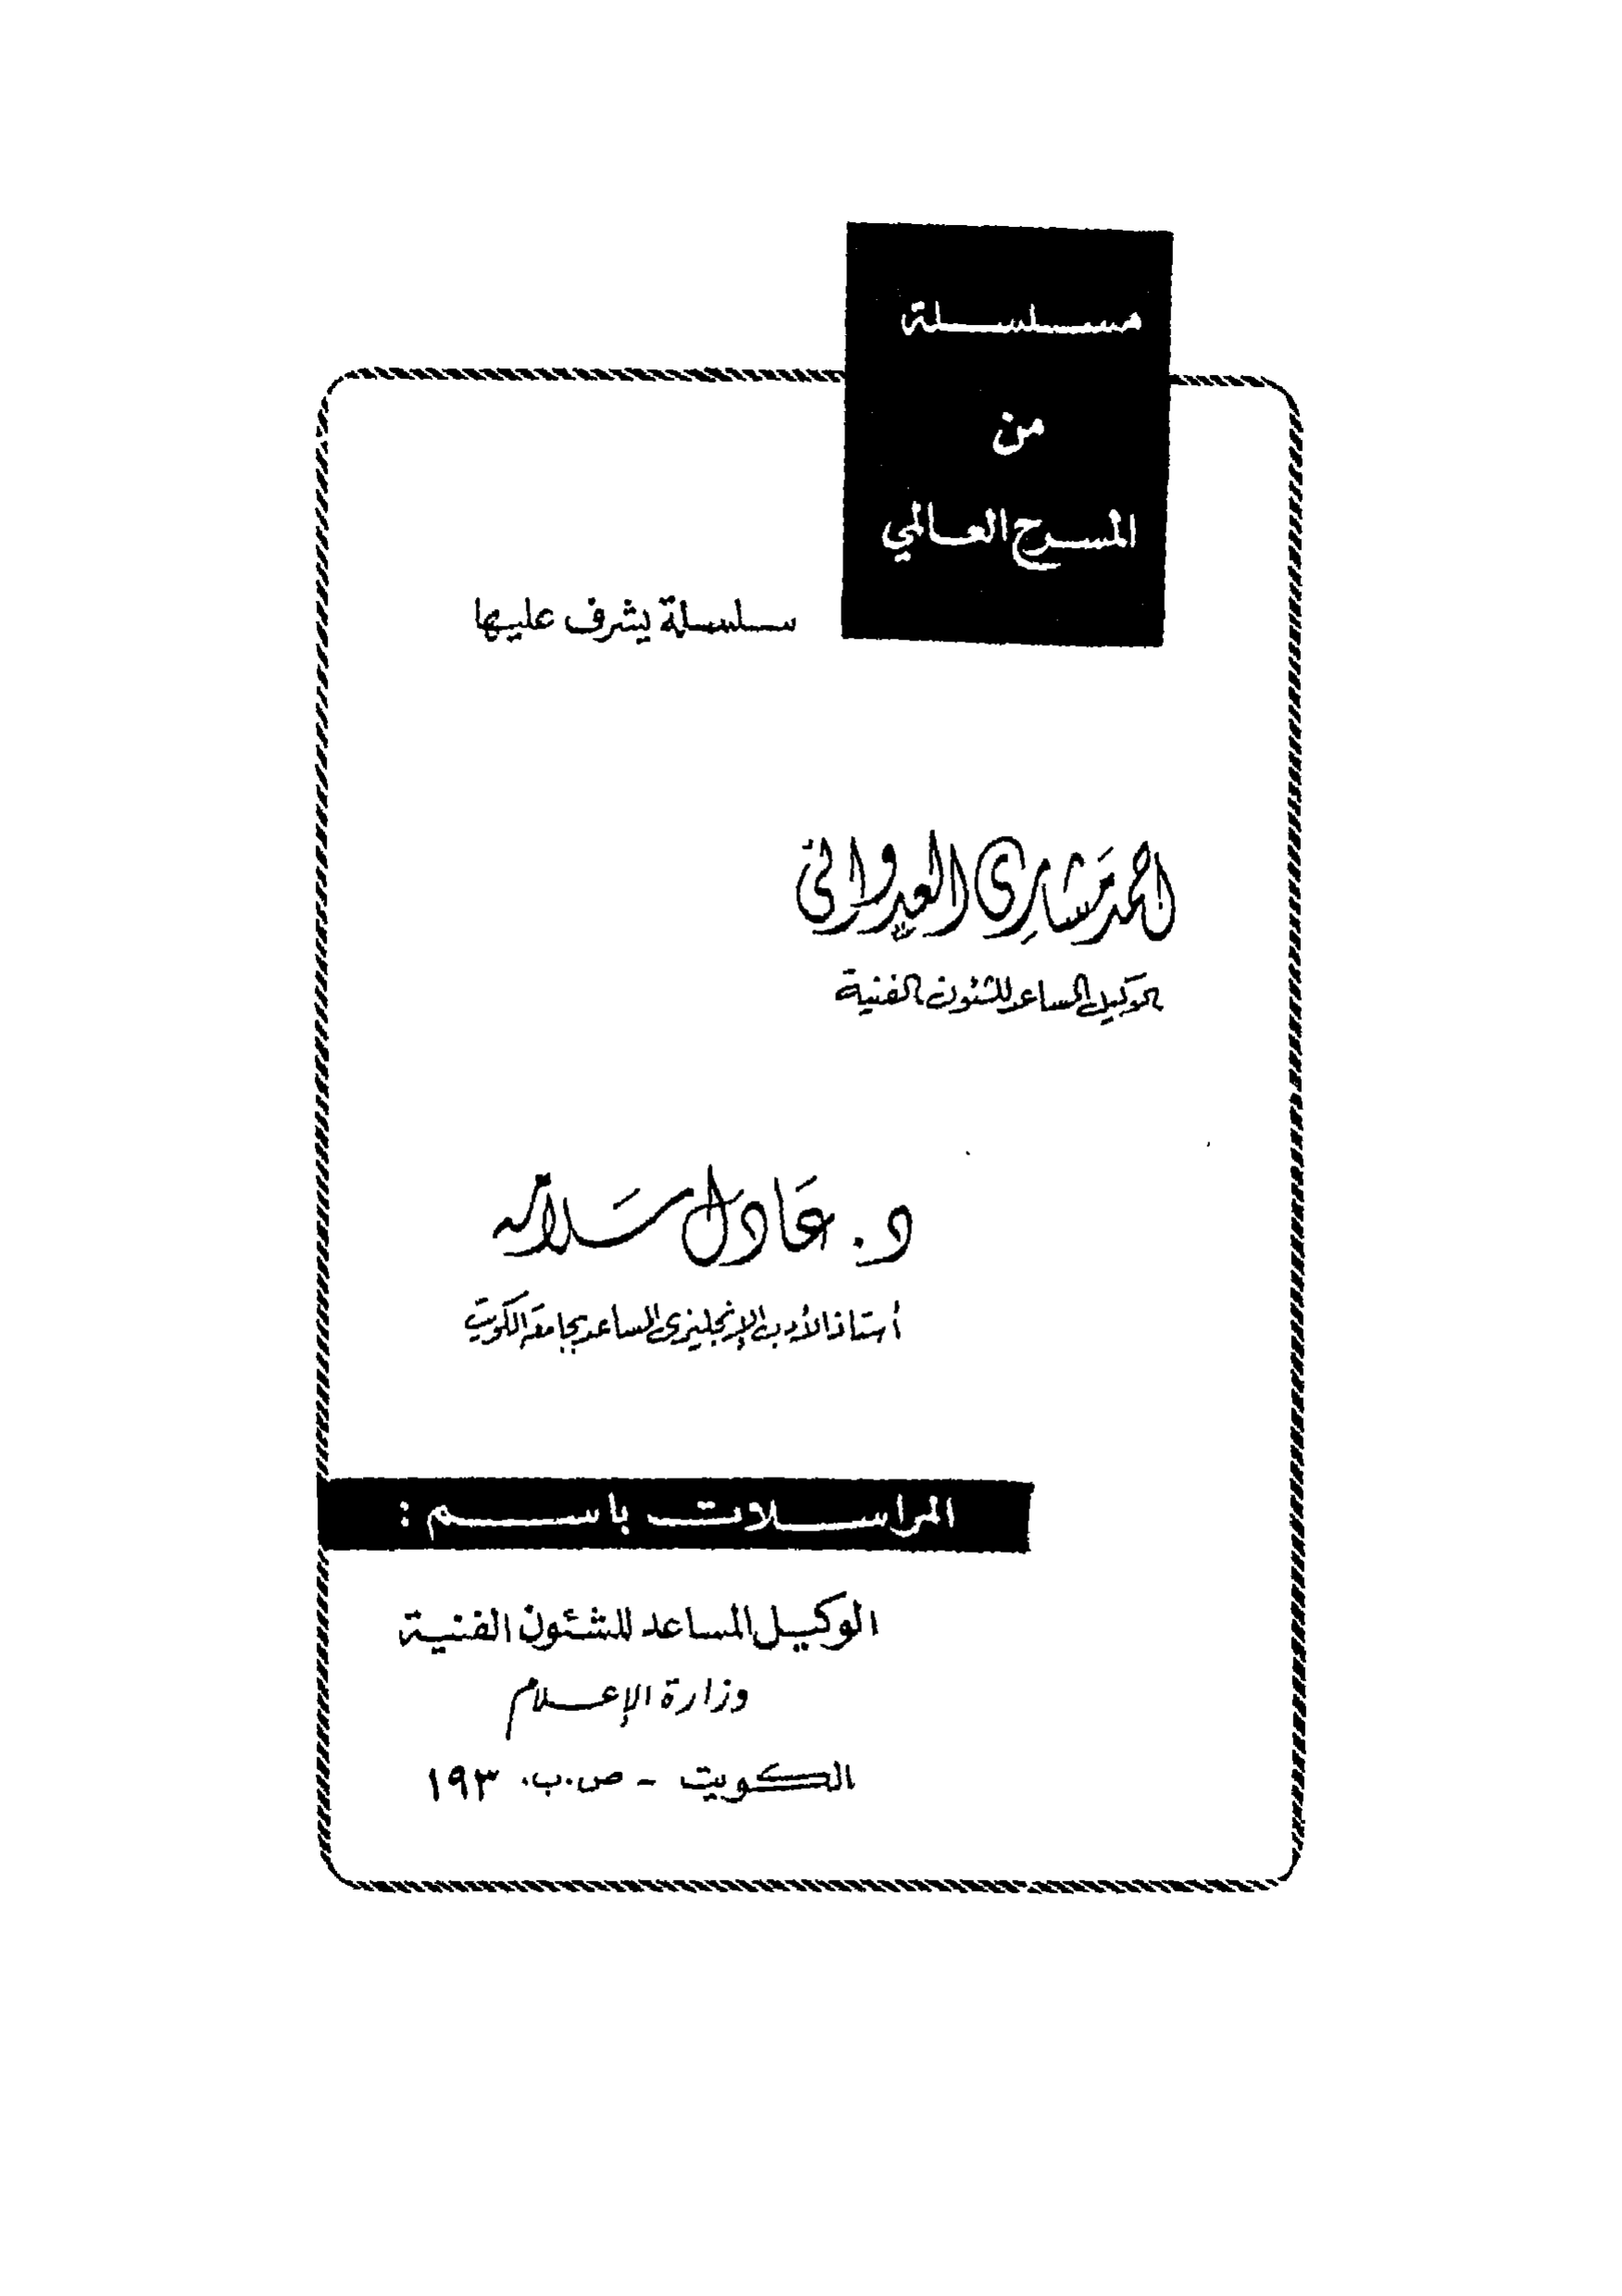 سلسلة
من
المسرح العالمي
سلسلة يشرف عليها
احمد مشاري العدواني
الوكيل المساعد للشئون الفنية
د. عادل سلامه
أستاذ الأدب الإنجليزي المساعد بجامعة الكويت
المراسلات باسم :
الوكيل المساعد للشئون الفنية
وزارة الإعلام
الكويت - ص.ب. ١٩٣